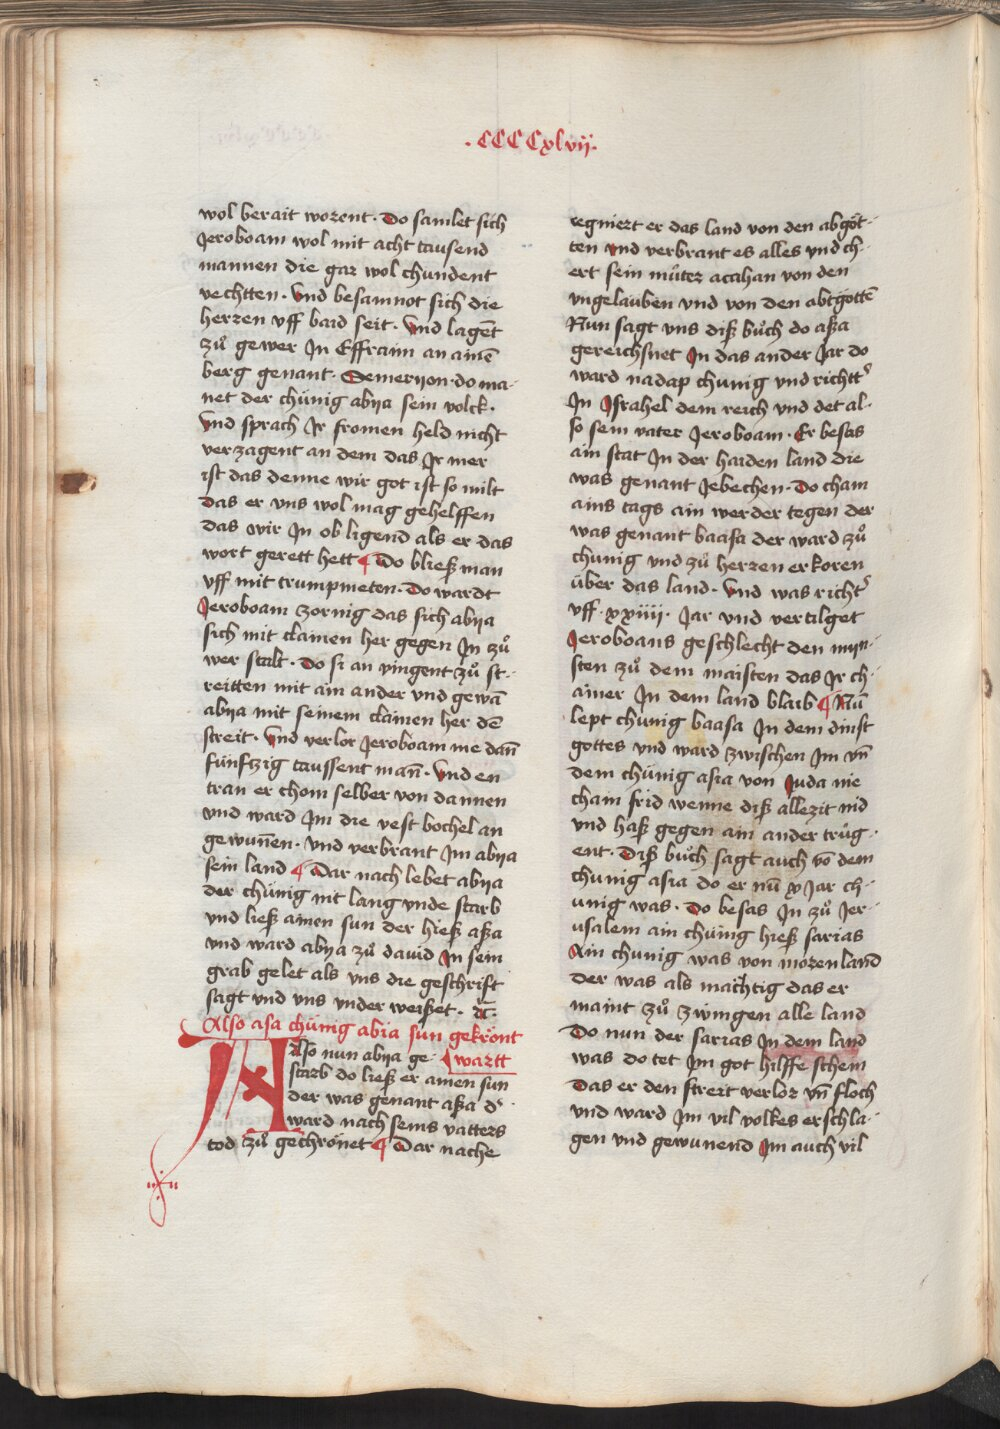 .CCCCxlvij.
wol berait worent. Do samlet sich
Jeroboam wol mit acht tausend
mannen die gar wol chundent
vechtten. Vnd besamnot sich die
herren vff baid seit. Vnd laget
zů gewer Jn Effraim an ainē
berg genant. Semerijon. do ma-
net der chünig abija sein volck.
Vnd sprach Jr fromen held nicht
verzagent an dem das Jr mer
ist das denne wir got ist so milt
das er vns wol mag gehelffen
das wir Jn ob ligend als er das
wort gerett hett ¶ Do bließ man
vff mit trumpmeten. Do wardt
Jeroboam zornig das sich abija
sich mit clainen her gegen Jn zů
wer stalt. Do si an vingent zů st-
reitten mit ain ander vnd gewā
abija mit seinem clainen her dē
streit. Vnd verlor Jeroboam me dañ
fünftzig taussent mañ. Vnd en
tran er chom selber von dannen
vnd ward Jm die vest bochel an
gewuñen. vnd verbrant Jm abija
sein land ¶ Dar nach lebet abija
der chünig nit lang vnde starb
vnd ließ ainen sun der hieß aßa
vnd ward abija zů dauid Jn sein
grab gelet als vns die geschrift
sagt vnd vns vnder weißet. ꝛc.
Also asa chünig abia sun gekrönt
¶ wartt
Also nun abija ge-
starb do ließ er ainen sun
der was genant aßa d'
ward nach seins vatters
tod zů gechrönet ¶ Dar nache
regniert er das land von den abgöt-
ten vnd verbrant es alles vnd ch-
ert sein můter acahan von den
vngelauben vnd von den abtgöttē
Nun sagt vns diß bůch do aßa
gereichsnet Jn das ander Jar do
ward nadap chunig vnd richtt'
Jn Jsrahel dem reich vnd det al-
so sein vater Jeroboam. Er besas
ain stat Jn der haiden land die
was genant Jebechen. Do cham
ains tags ain werder tegen der
was genant baasa der ward zů
chunig vnd zů herren erkoren
über das land. Vnd was richt'
vff. xxiiii. Jar vnd vertilget
Jeroboans geschlecht den myn-
sten zů dem maisten das Jr ch-
ainer Jn dem land blaib ¶ Nū
lept chunig baasa Jn dem dinst
gottes vnd ward zwischen Jm vñ
dem chünig asia von Juda nie
cham frid wenne diß allezit nid
vnd haß gegen ain ander trůg-
ent. Diß bůch sagt auch vō dem
chunig asia do er nū x Jar ch-
unig was. Do besas Jn zů Jer-
usalem ain chünig hieß sarias
Ain chunig was von morenland
der was als mächtig das er
maint zů zwingen alle land
Do nun der sarias Jn dem land
was do tet Jm got hilffe schein
das er den streit verlor vñ floch
vnd ward Jm vil volkes erschla-
gen vnd gewunend Jm auch vil